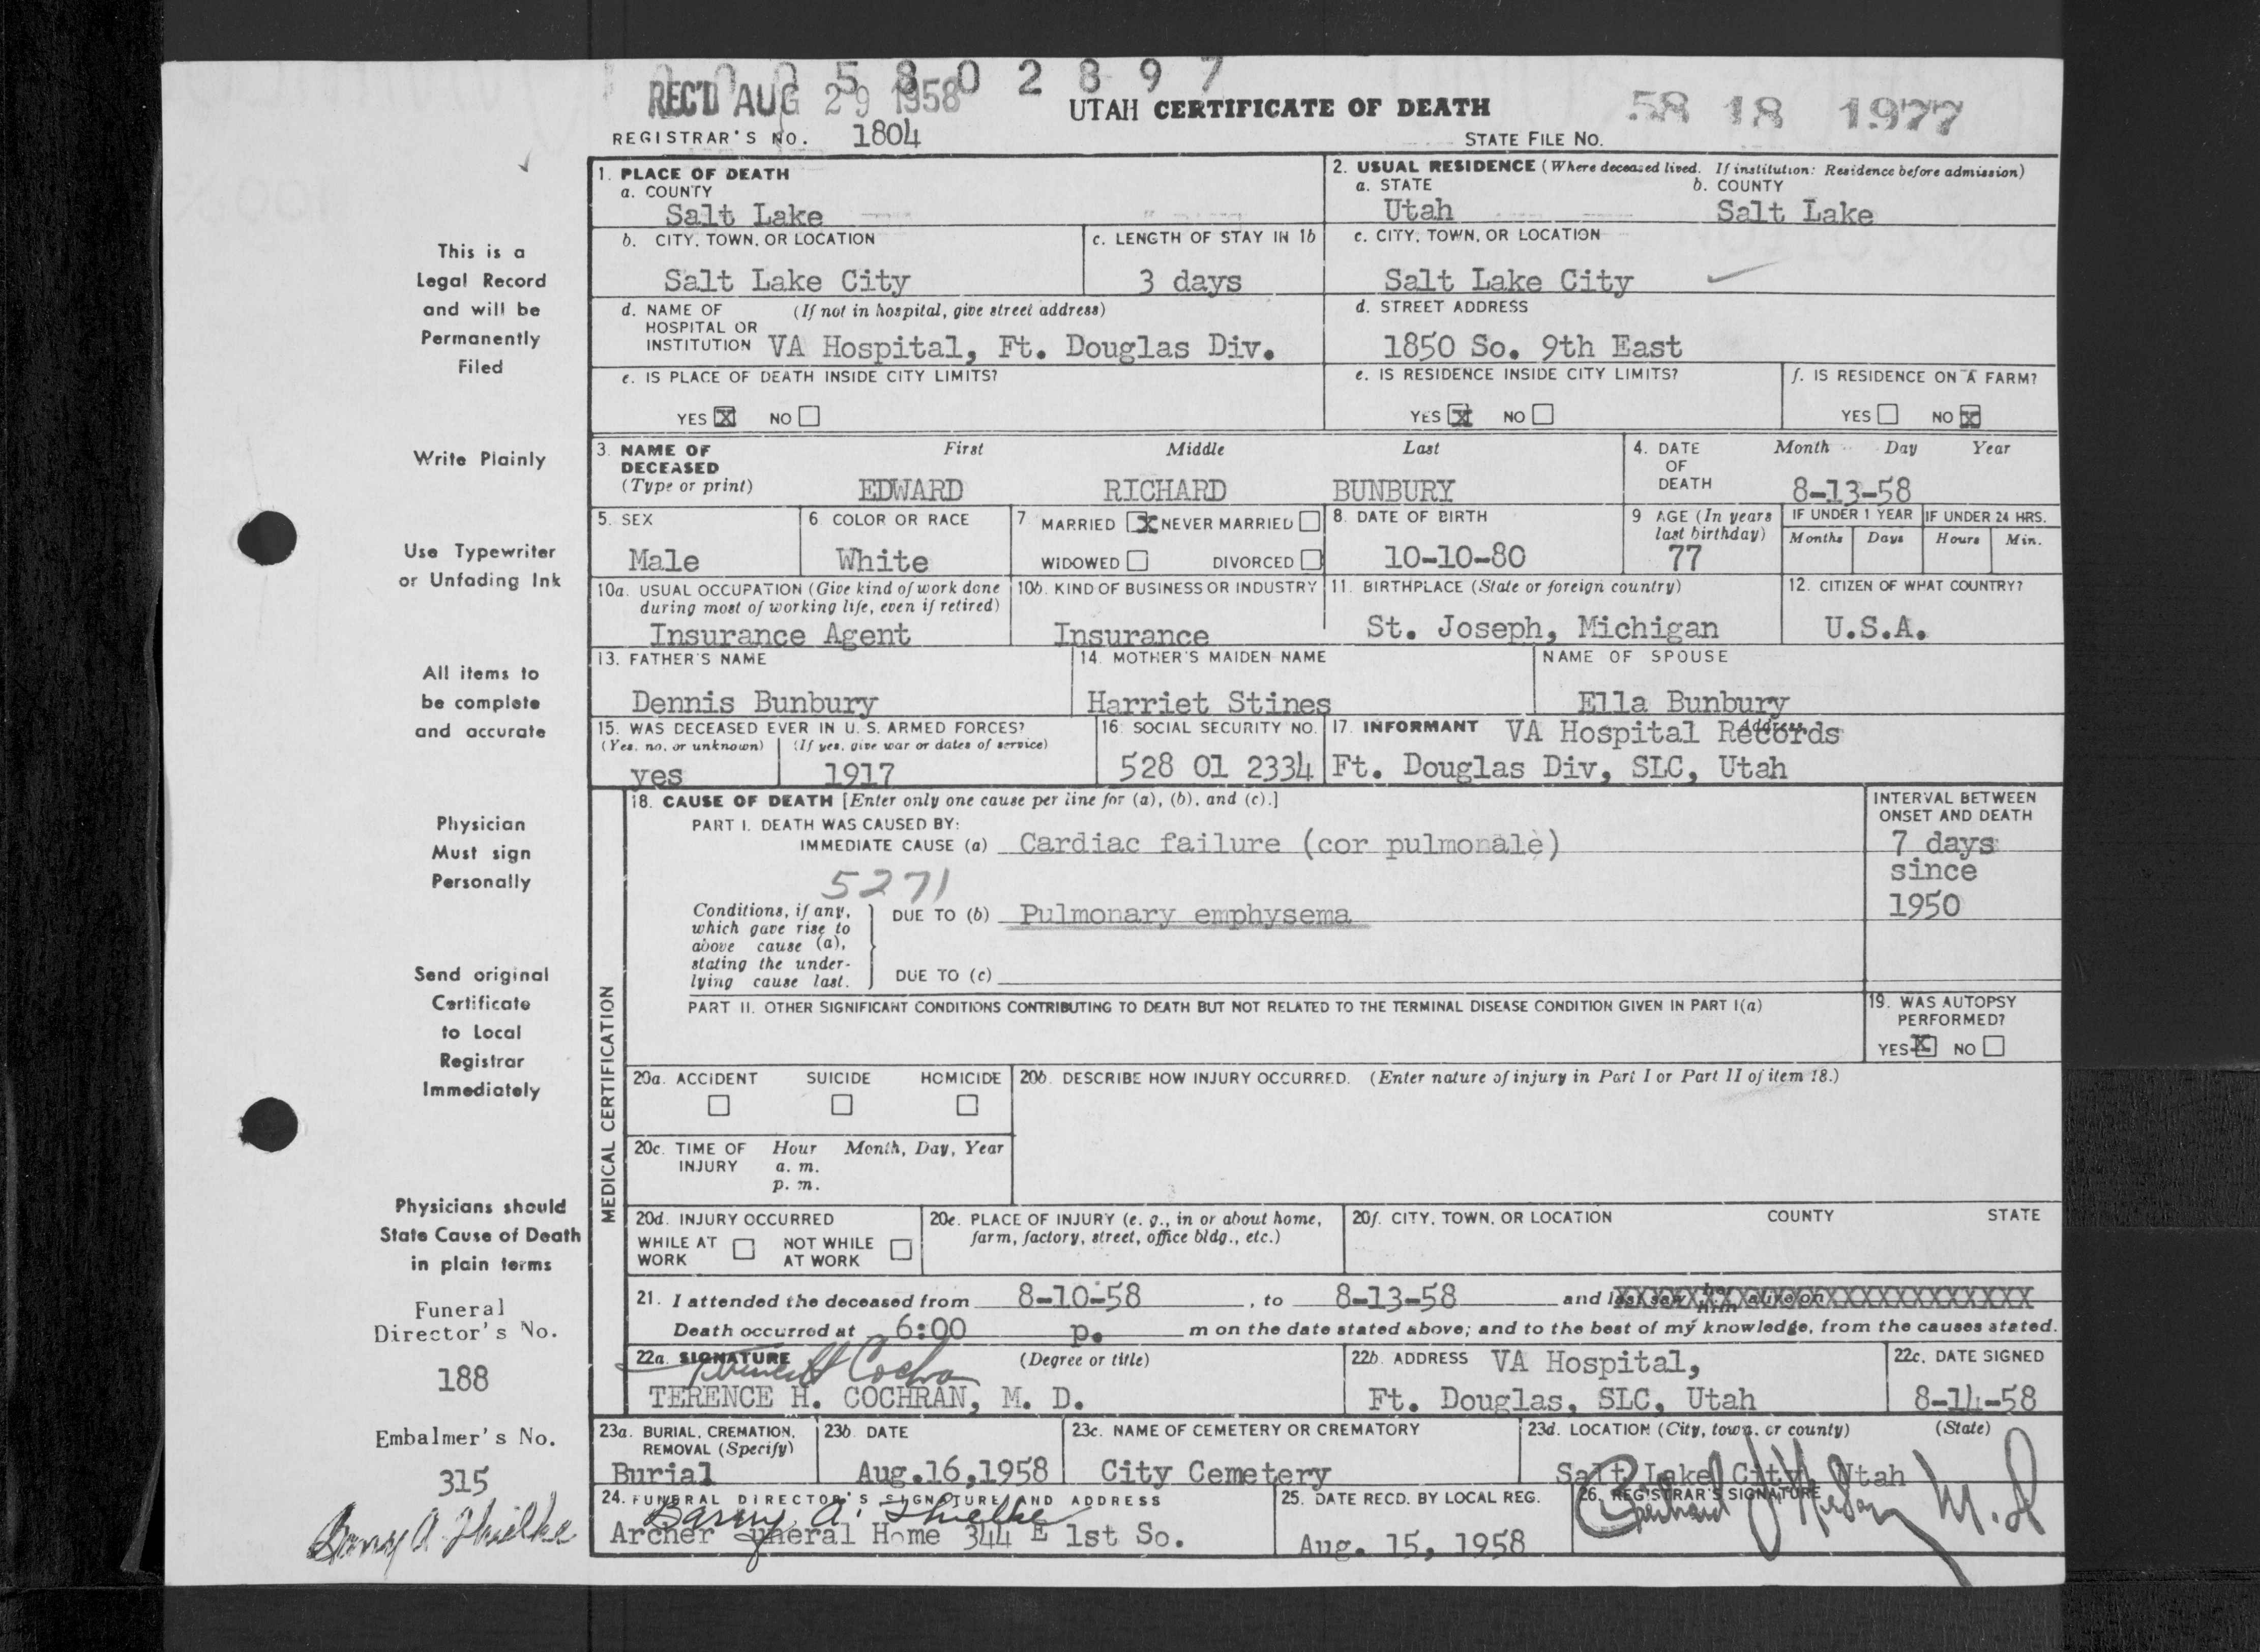 0 0 0 5 8 0 2 8 9 7
REC'D AUG 29 1958
UTAH CERTIFICATE OF DEATH
58 18 1977
REGISTRAR'S NO. 1804
STATE FILE NO.
1. PLACE OF DEATH
a. COUNTY
Salt Lake
2. USUAL RESIDENCE (Where deceased lived. If institution: Residence before admission)
a. STATE b. COUNTY
Utah Salt Lake
b. CITY, TOWN, OR LOCATION
Salt Lake City
c. LENGTH OF STAY IN 1b
3 days
c. CITY, TOWN, OR LOCATION
Salt Lake City
d. NAME OF (If not in hospital, give street address)
HOSPITAL OR
INSTITUTION VA Hospital, Ft. Douglas Div.
d. STREET ADDRESS
1850 So. 9th East
e. IS PLACE OF DEATH INSIDE CITY LIMITS?
YES X NO
e. IS RESIDENCE INSIDE CITY LIMITS?
YES X NO
f. IS RESIDENCE ON A FARM?
YES NO X
3. NAME OF DECEASED (Type or print)
First Middle Last
EDWARD RICHARD BUNBURY
4. DATE OF DEATH
Month Day Year
8-13-58
5. SEX
Male
6 COLOR OR RACE
White
7 MARRIED X NEVER MARRIED
WIDOWED DIVORCED
8. DATE OF BIRTH
10-10-80
9 AGE (In years last birthday)
77
IF UNDER 1 YEAR
Months Days
IF UNDER 24 HRS.
Hours Min.
10a. USUAL OCCUPATION (Give kind of work done
during most of working life, even if retired)
Insurance Agent
10b. KIND OF BUSINESS OR INDUSTRY
Insurance
11. BIRTHPLACE (State or foreign country)
St. Joseph, Michigan
12. CITIZEN OF WHAT COUNTRY?
U.S.A.
13. FATHER'S NAME
Dennis Bunbury
14. MOTHER'S MAIDEN NAME
Harriet Stines
NAME OF SPOUSE
Ella Bunbury
15. WAS DECEASED EVER IN U. S. ARMED FORCES?
(Yes, no, or unknown) (If yes, give war or dates of service)
yes 1917
16. SOCIAL SECURITY NO.
528 01 2334
17. INFORMANT Address
VA Hospital Records
Ft. Douglas Div, SLC, Utah
MEDICAL CERTIFICATION
18. CAUSE OF DEATH [Enter only one cause per line for (a), (b), and (c).]
PART I. DEATH WAS CAUSED BY:
IMMEDIATE CAUSE (a) Cardiac failure (cor pulmonale)
5271
Conditions, if any,
which gave rise to
above cause (a),
stating the under-
lying cause last.
DUE TO (b) Pulmonary emphysema
DUE TO (c)
INTERVAL BETWEEN
ONSET AND DEATH
7 days
since
1950
PART II. OTHER SIGNIFICANT CONDITIONS CONTRIBUTING TO DEATH BUT NOT RELATED TO THE TERMINAL DISEASE CONDITION GIVEN IN PART I(a)
19. WAS AUTOPSY
PERFORMED?
YES X NO
20a. ACCIDENT SUICIDE HOMICIDE
20b. DESCRIBE HOW INJURY OCCURRED. (Enter nature of injury in Part I or Part II of item 18.)
20c. TIME OF INJURY
Hour Month, Day, Year
a. m.
p. m.
20d. INJURY OCCURRED
WHILE AT WORK NOT WHILE AT WORK
20e. PLACE OF INJURY (e. g., in or about home,
farm, factory, street, office bldg., etc.)
20f. CITY, TOWN, OR LOCATION COUNTY STATE
21. I attended the deceased from 8-10-58, to 8-13-58 and last saw her him alive on
Death occurred at 6:00 p. m on the date stated above; and to the best of my knowledge, from the causes stated.
22a. SIGNATURE (Degree or title)
Terence H Cochran
TERENCE H. COCHRAN, M. D.
22b. ADDRESS VA Hospital,
Ft. Douglas, SLC, Utah
22c. DATE SIGNED
8-14-58
23a. BURIAL, CREMATION,
REMOVAL (Specify)
Burial
23b. DATE
Aug.16,1958
23c. NAME OF CEMETERY OR CREMATORY
City Cemetery
23d. LOCATION (City, town, or county) (State)
Salt Lake City, Utah
24. FUNERAL DIRECTOR'S SIGNATURE AND ADDRESS
Barry A. Thielke
Archer Funeral Home 344 E 1st So.
25. DATE RECD. BY LOCAL REG.
Aug. 15, 1958
26. REGISTRAR'S SIGNATURE
M.D
This is a
Legal Record
and will be
Permanently
Filed
Write Plainly
Use Typewriter
or Unfading Ink
All items to
be complete
and accurate
Physician
Must sign
Personally
Send original
Certificate
to Local
Registrar
Immediately
Physicians should
State Cause of Death
in plain terms
Funeral
Director's No.
188
Embalmer's No.
315
Barry A Thielke